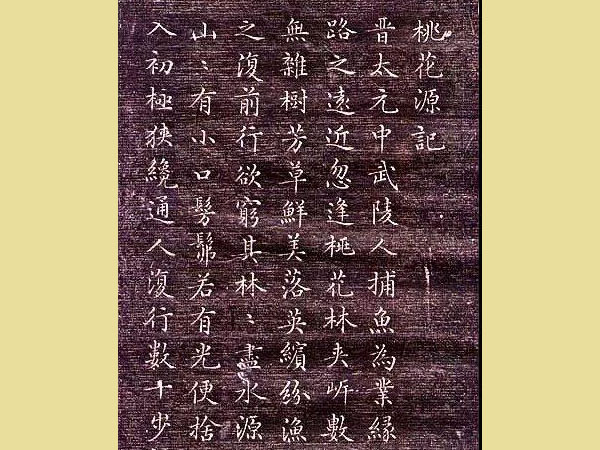 桃花源記
晉太元中武陵人捕魚為業緣
路之遠近忽逢桃花林夾岸數
無雜樹芳草鮮美落英繽紛漁
之復前行欲窮其林〻盡水源
山〻有小口髣髴若有光便捨
入初極狹纔通人復行數十步